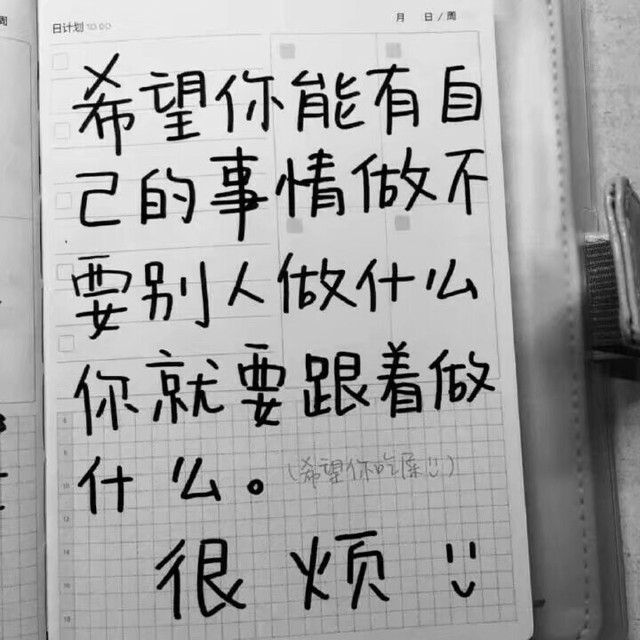 日计划 10.00 月 日/周
希望你能有自
己的事情做不
要别人做什么
你就要跟着做
什么。(希望你吃屎:))
很烦 :)